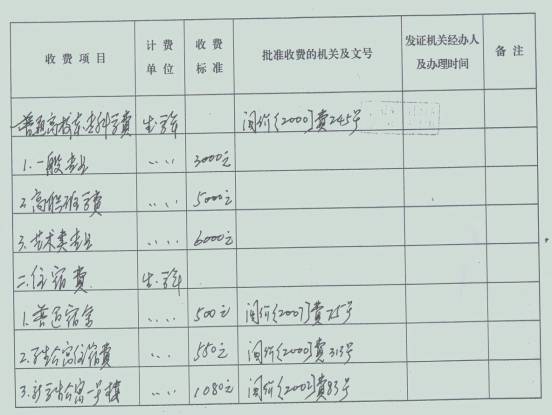 收费项目 计费单位 收费标准 批准收费的机关及文号 发证机关经办人及办理时间 备注
一普通高校本专科学费 生.学年 闽价(2000)费245号
1.一般专业 〃 3000元
2.高职班学费 〃 5000元
3.艺术类专业 〃 6000元
二.住宿费 生.学年
1.普通宿舍 〃 500元 闽价(2001)费75号
2.学生公寓住宿费 〃 550元 闽价(2000)费313号
3.新学生公寓一号楼 〃 1080元 闽价(2002)费83号